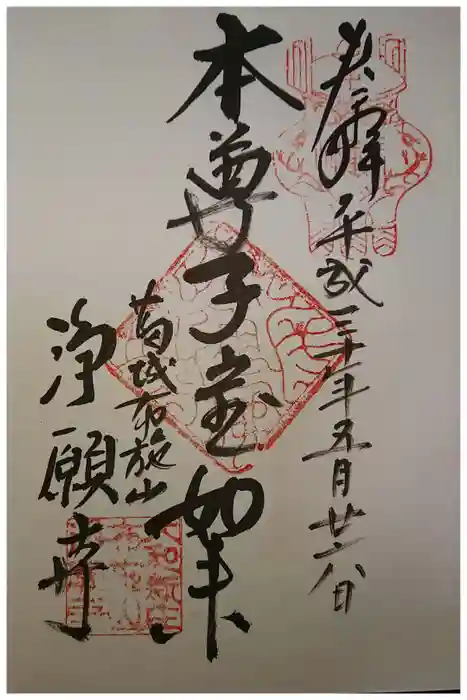 奉拝 平成三十年五月廿八日
本尊子安如来
葛城布施山
浄願寺